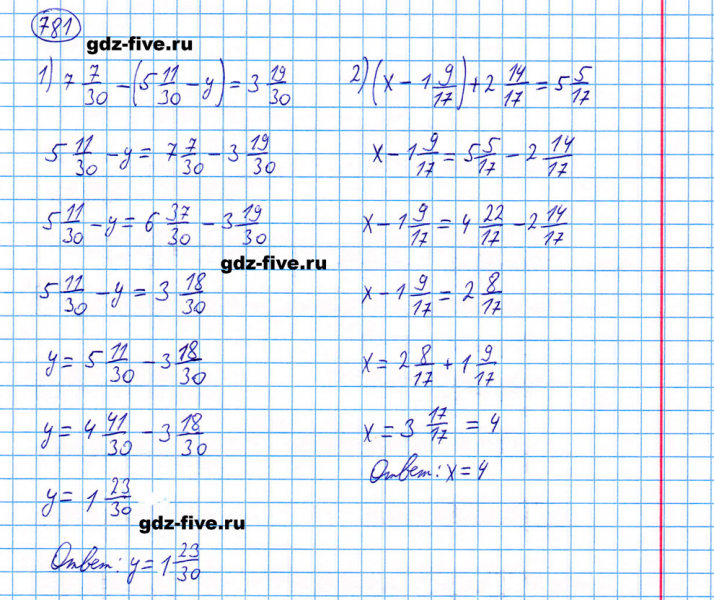 781
gdz-five.ru
1) 7 7/30 - (5 11/30 - y) = 3 19/30
5 11/30 - y = 7 7/30 - 3 19/30
5 11/30 - y = 6 37/30 - 3 19/30
gdz-five.ru
5 11/30 - y = 3 18/30
y = 5 11/30 - 3 18/30
y = 4 41/30 - 3 18/30
y = 1 23/30
gdz-five.ru
Ответ: y = 1 23/30
2) (x - 1 9/17) + 2 14/17 = 5 5/17
x - 1 9/17 = 5 5/17 - 2 14/17
x - 1 9/17 = 4 22/17 - 2 14/17
x - 1 9/17 = 2 8/17
x = 2 8/17 + 1 9/17
x = 3 17/17 = 4
Ответ: x = 4